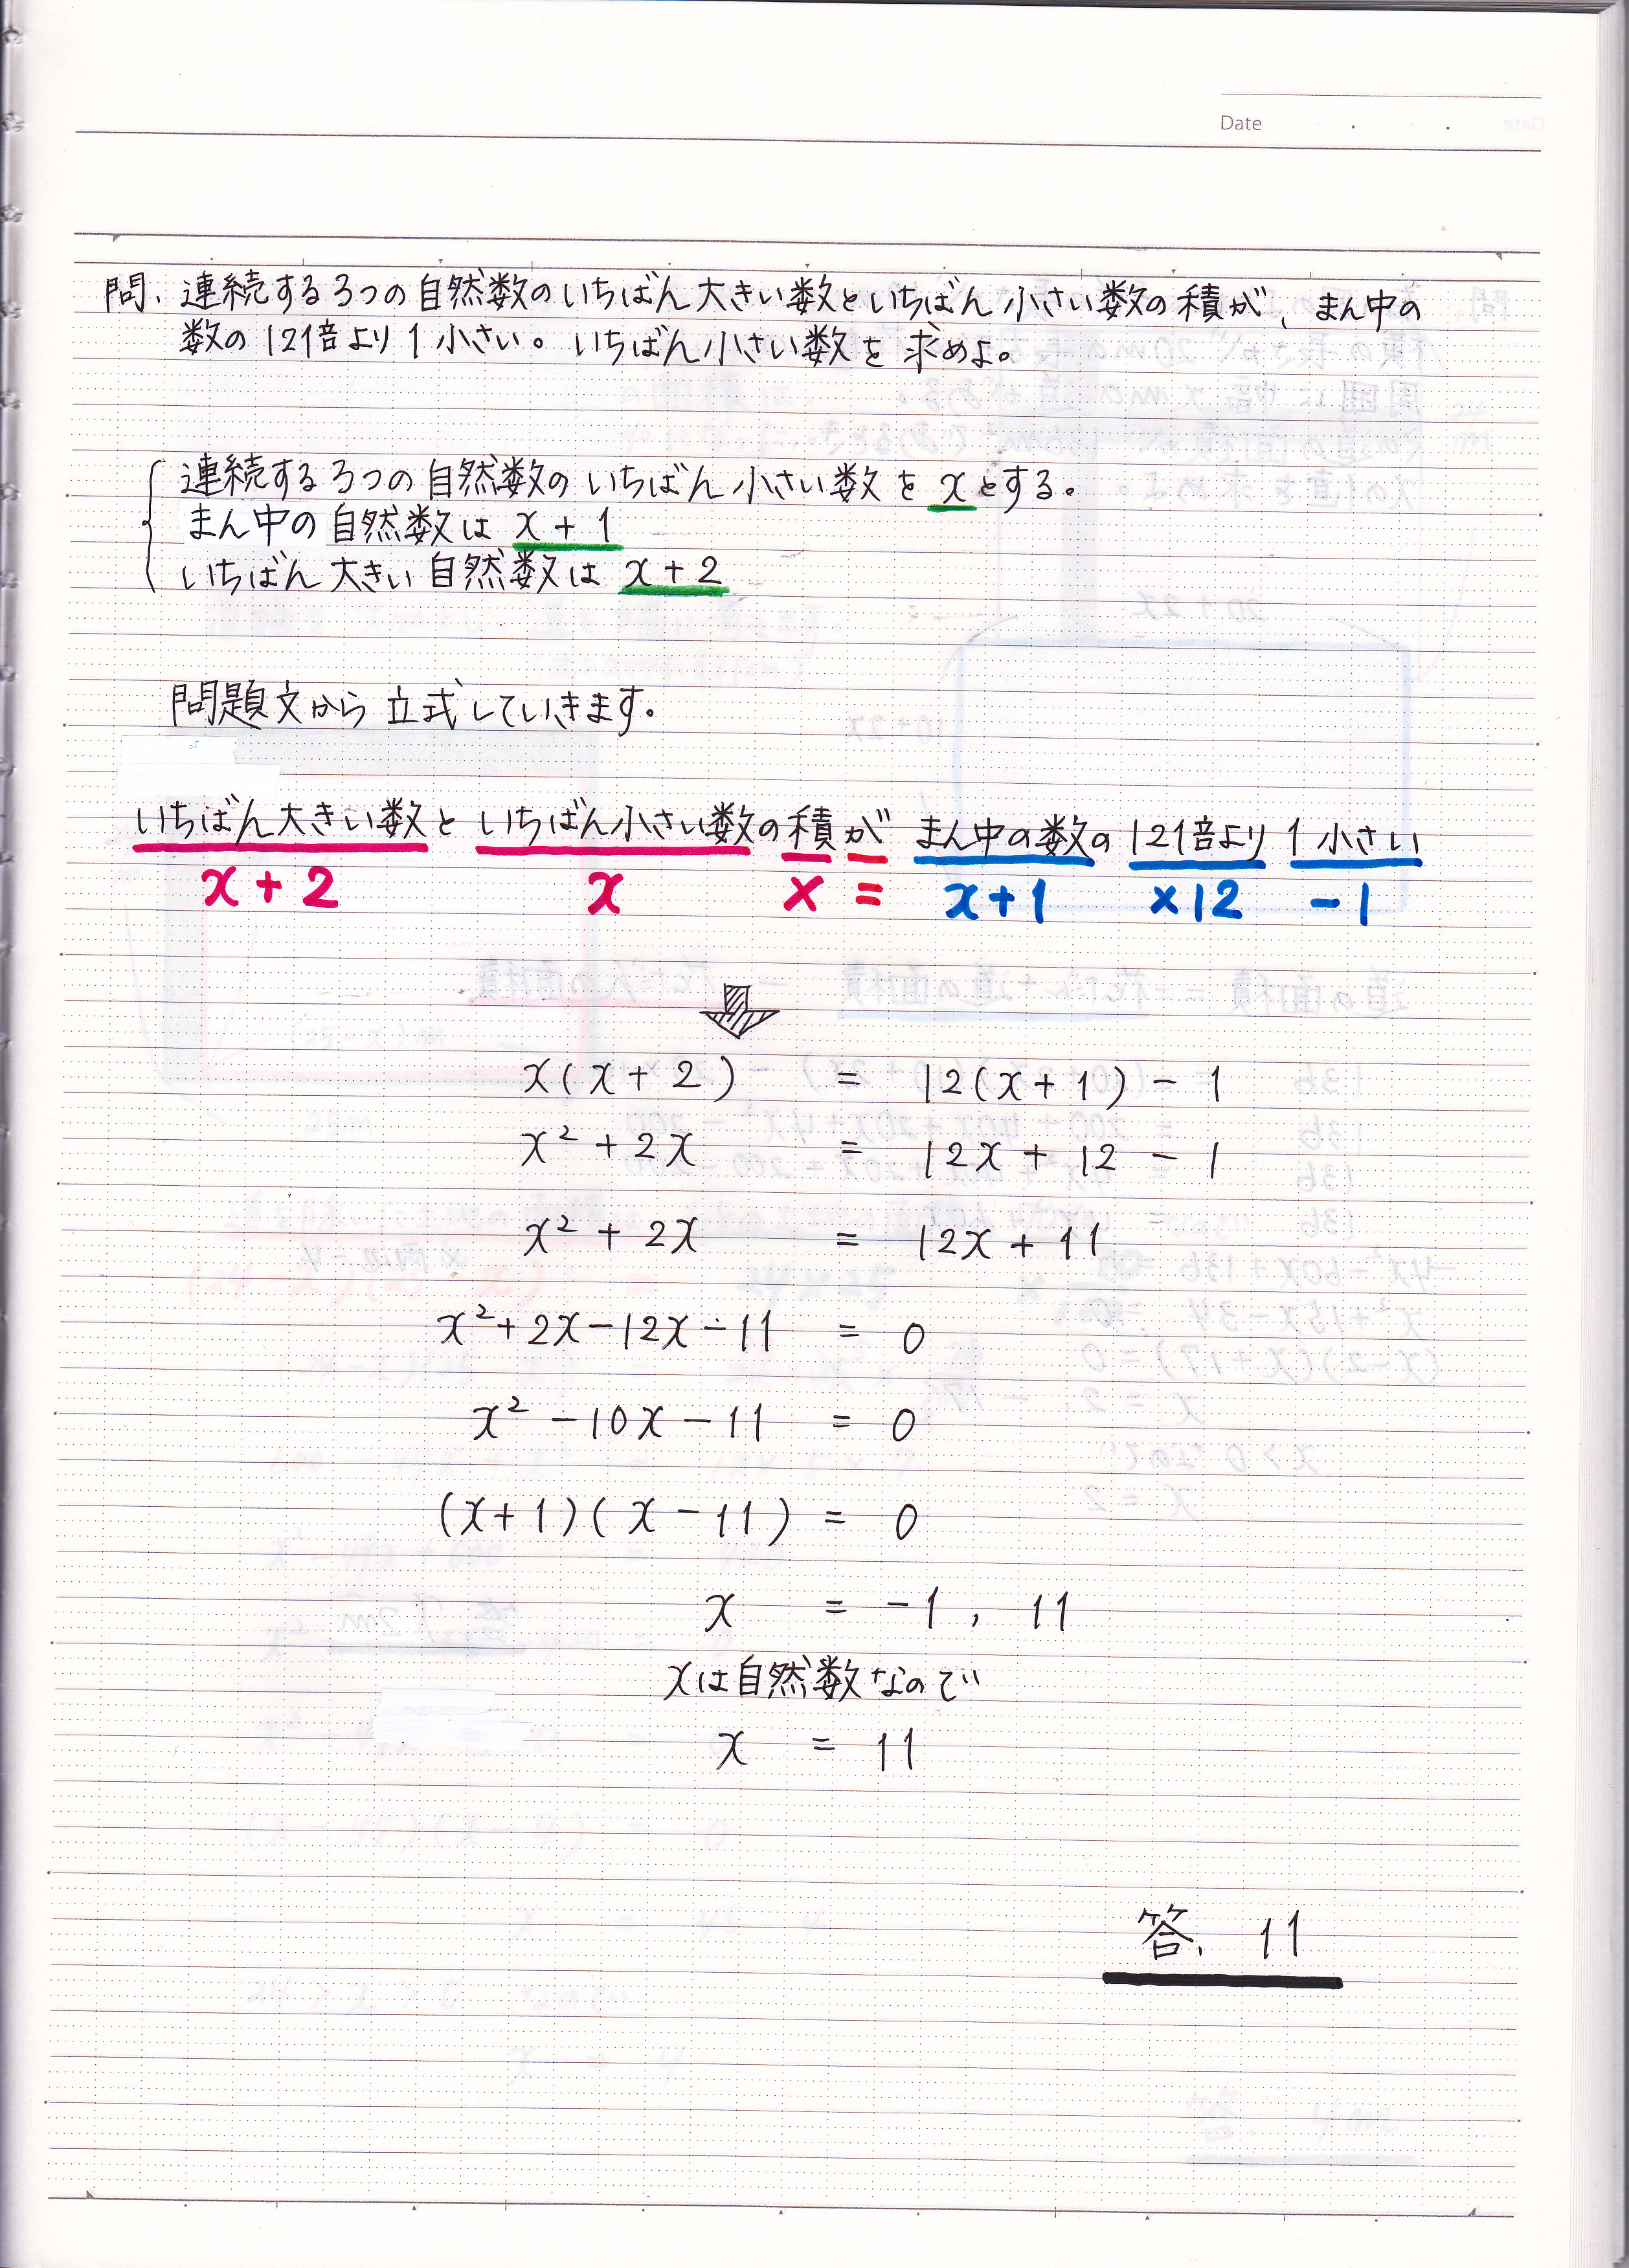 Date
問、連続する3つの自然数のいちばん大きい数といちばん小さい数の積が、まん中の
数の12倍より1小さい。いちばん小さい数を求めよ。
連続する3つの自然数のいちばん小さい数をxとする。
まん中の自然数は x+1
いちばん大きい自然数は x+2
問題文から立式していきます。
いちばん大きい数といちばん小さい数の積がまん中の数の12倍より1小さい
x+2 x × = x+1 ×12 -1
x(x+2) = 12(x+1)-1
x²+2x = 12x+12-1
x²+2x = 12x+11
x²+2x-12x-11 = 0
x²-10x-11 = 0
(x+1)(x-11) = 0
x = -1, 11
xは自然数なので
x = 11
答、11